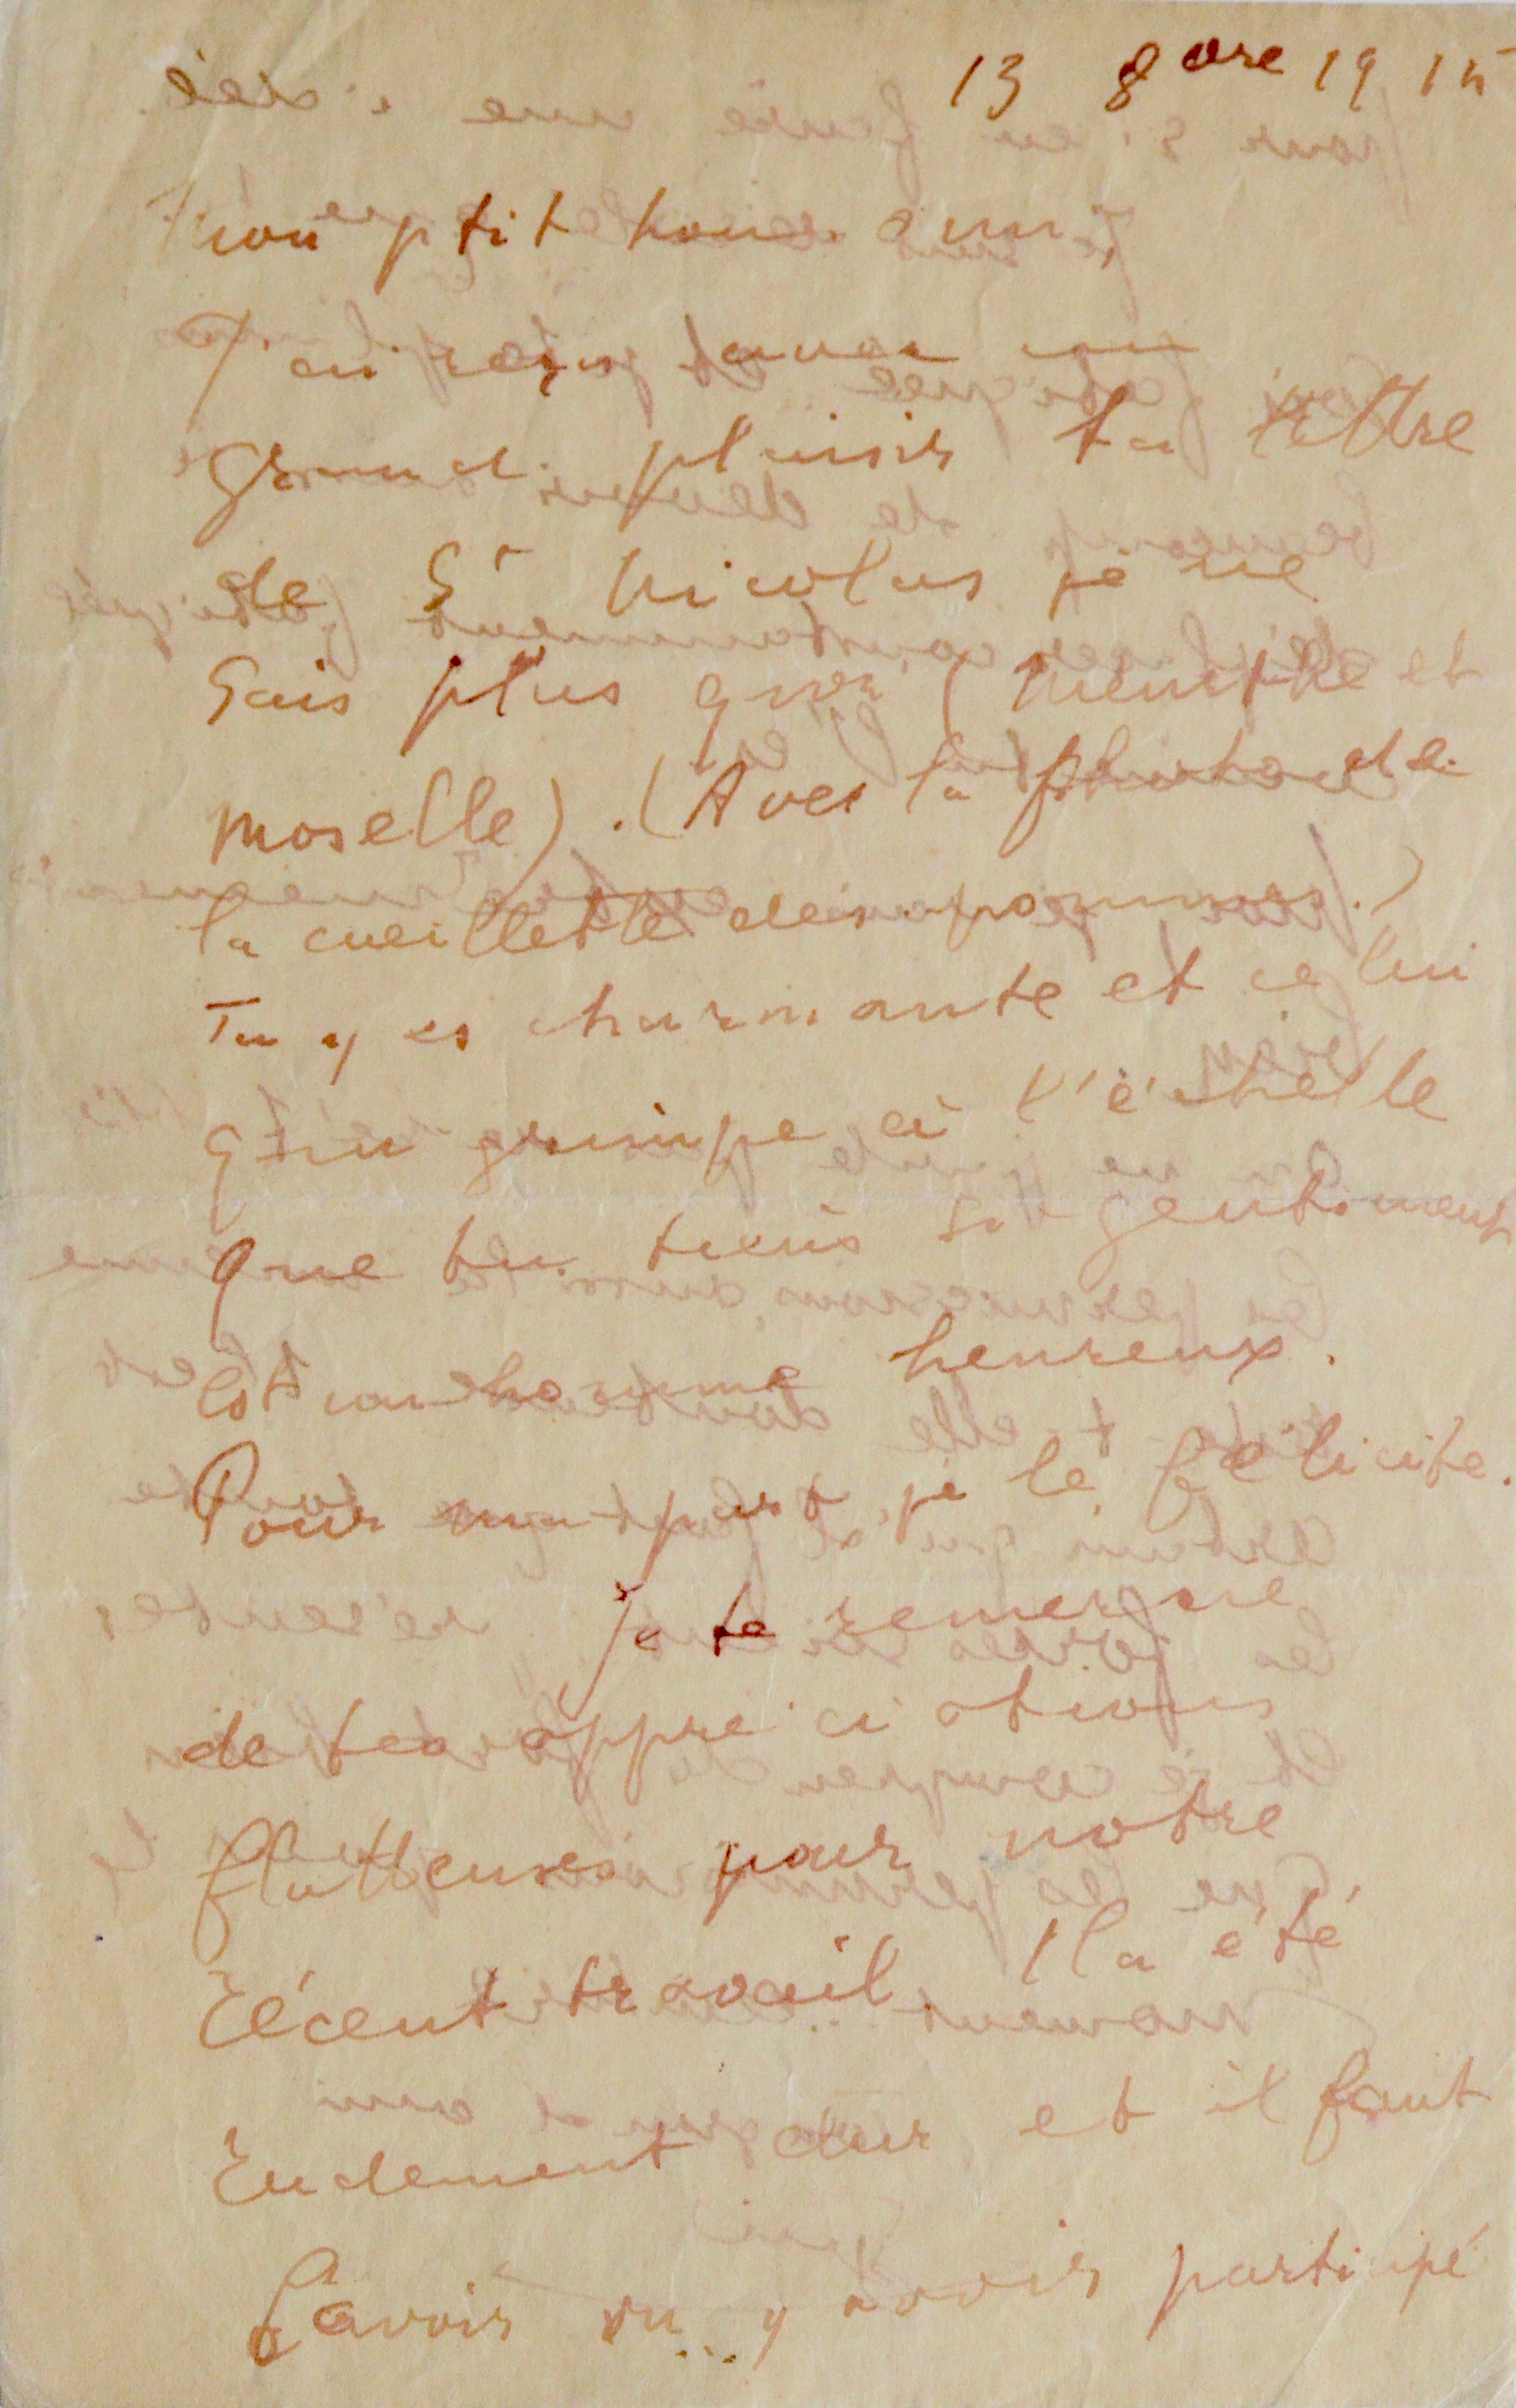 13 8bre 1915
Mon ptit hom
J'ai reçu avec un
grand plaisir ta lettre
de St Nicolas je ne
sais plus quoi (Meurthe et
moselle). (Avec la photo de
la cueillette des pommes.)
Tu y es charmante et celui
qui grimpe à l'échelle
que tu tiens si gentiment
est un homme heureux.
Pour ma part, je le félicite.
Je te remercie
de tes appréciations
flatteuses pour notre
récent travail. Il a été
rudement dur et il faut
l'avoir vu... y avoir participé